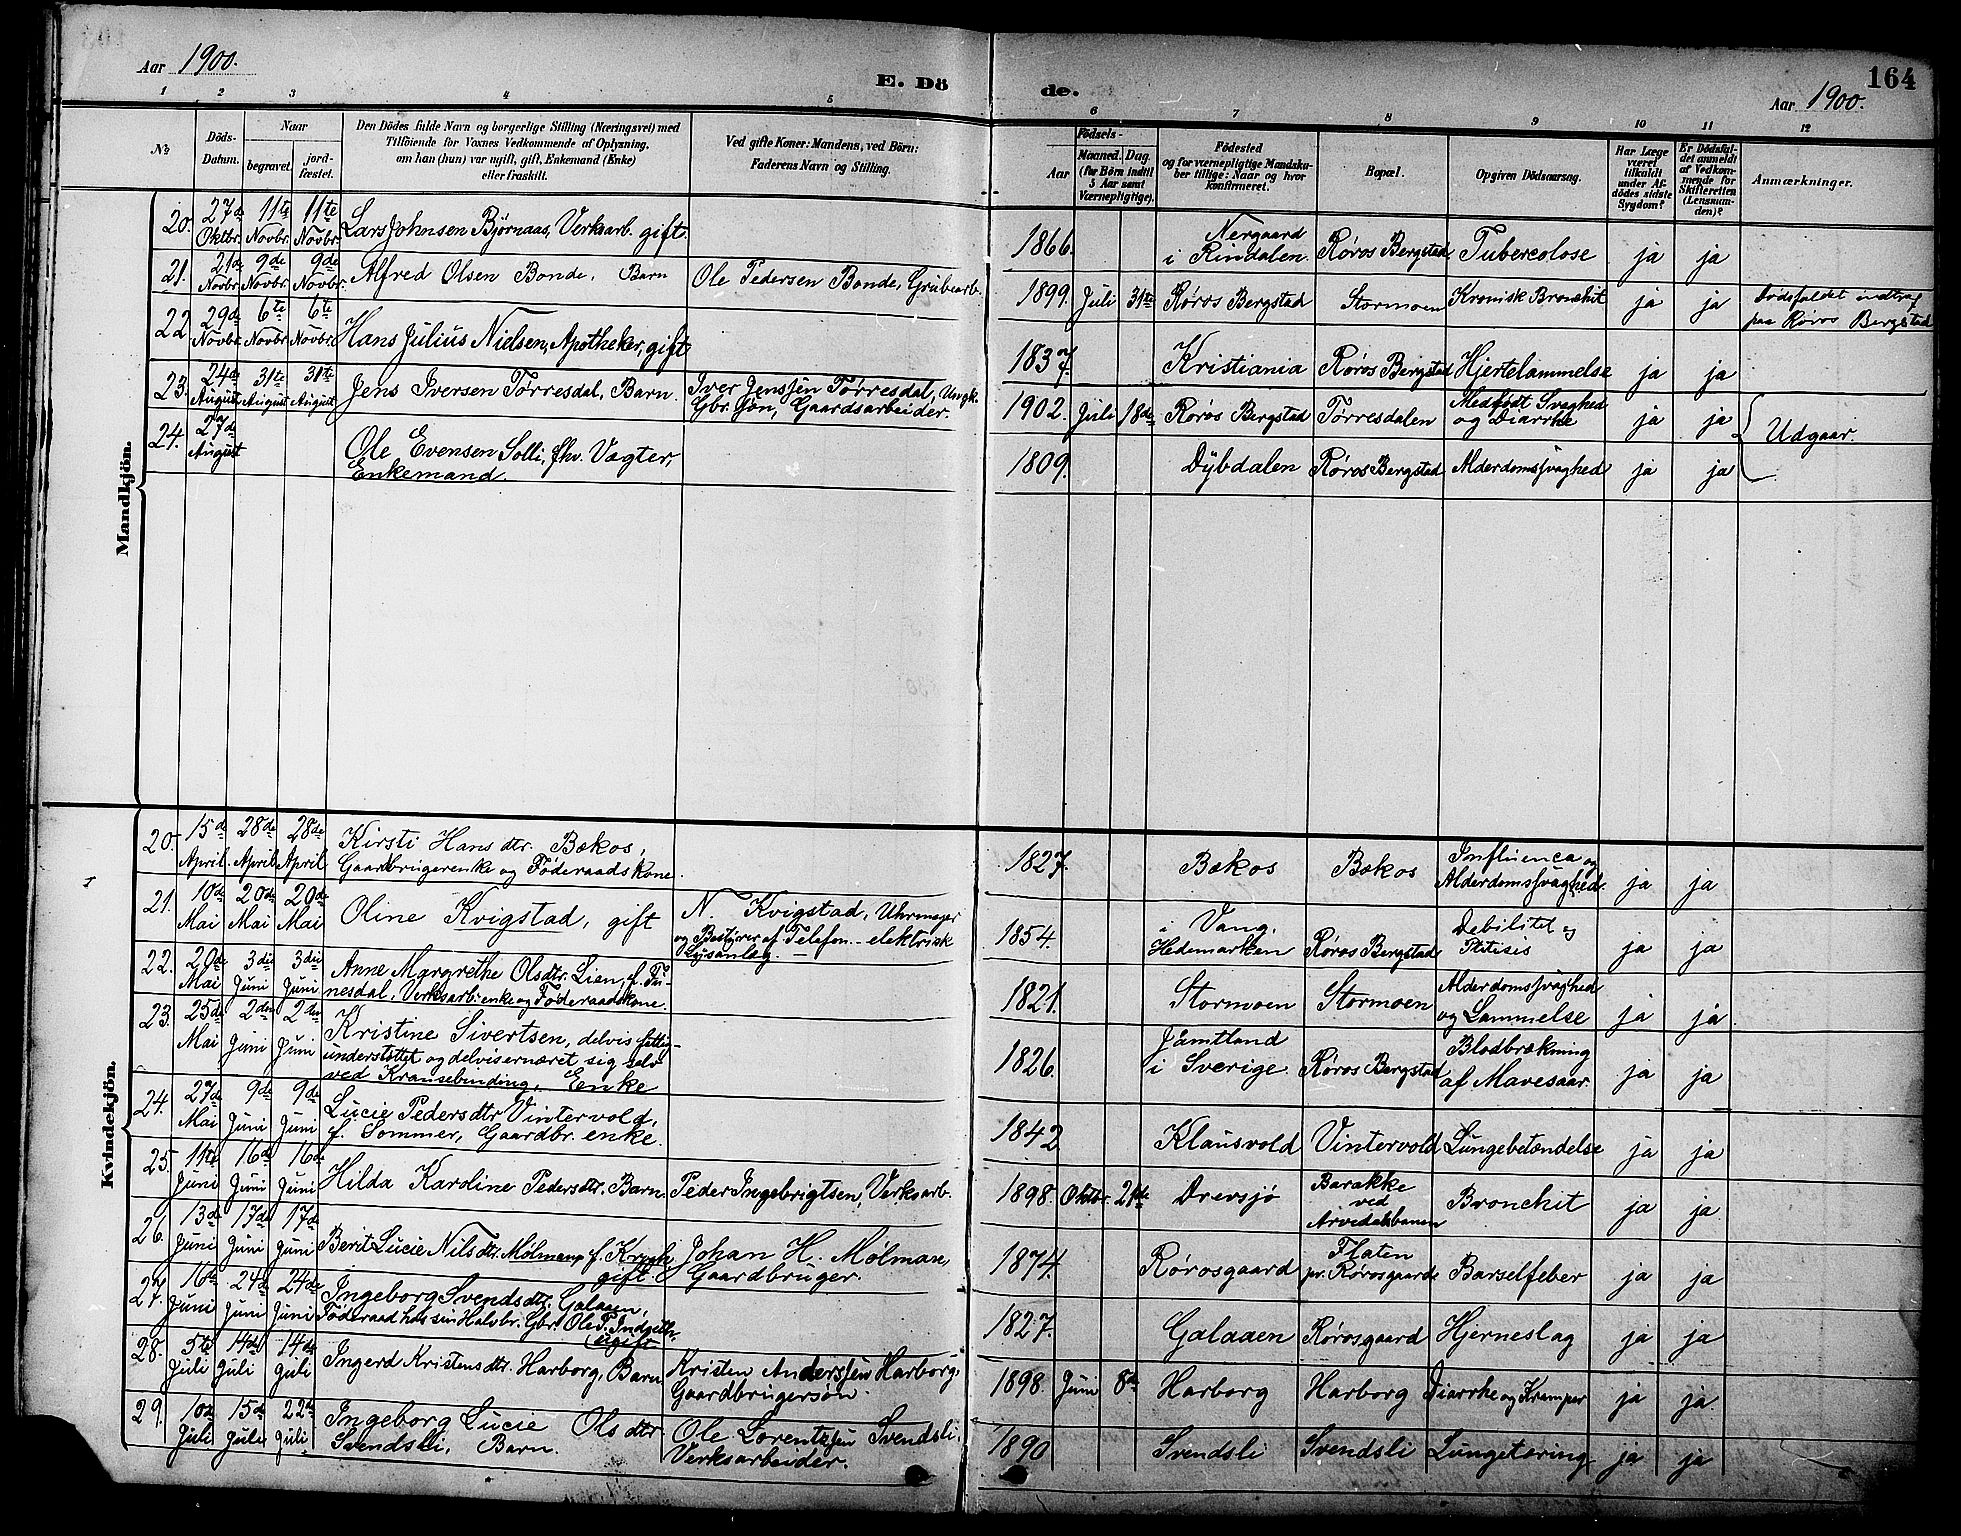 Aar 1900.
E. Dö
de.
164
Aar 1900.
1 2 3 4 5 6 7 8 9 10 11 12
No
Döds-
Datum.
Naar
begravet.
jord-
fæstet.
Den Dödes fulde Navn og borgerlige Stilling (Næringsvei) med
Tilföiende for Voxnes Vedkommende af Oplysning,
om han (hun) var ugift, gift, Enkemand (Enke)
eller fraskilt.
Ved gifte Koner: Mandens, ved Börn:
Faderens Navn og Stilling.
Födsels-
Aar
Maaned. Dag.
(for Börn indtil
5 Aar samt
Værnepligtige).
Födested
og for værnepligtige Mandsku-
ber tillige: Naar og hvor
konfirmeret.
Bopæl.
Opgiven Dödsaarsag.
Har Læge
været
tilkaldt
under Af-
dödes sidste
Sygdom?
Er Dödsfal-
det anmeldt
af Vedkom-
mende for
Skifteretten
(Lensman-
den)?
Anmærkninger.
Mandkjön.
20. 27de Oktbr. 11te Novbr. 11te Novbr. Lars Johnsen Bjørnaas, Verksarb. gift. 1866. Nergaard
i Rindalen. Røros Bergstad Tubercolose ja ja
21. 21de Novbr. 9de Novbr. 9de Novbr. Alfred Olsen Bonde, Barn Ole Pedersen Bonde, Grubearb. 1899. Juli 31te Røros Bergstad Stormoen Kronisk Bronchit ja ja Dødsfaldet indtraf
paa Røros Bergstad
22 29de Novbr. 6te Novbr. 6te Novbr. Hans Julius Nielsen, Apotheker, gift 1837. Kristiania Røros Bergstad Hjertelammelse ja ja
23. 24de August 31te August 31te August Jens Iversen Tørresdal, Barn. Iver Jenssen Tørresdal, Ungk.
Gbr. Søn, Gaardsarbeider. 1902. Juli 18de Røros Bergstad Tørresdalen Medfødt Svaghed
og Diarrhe ja ja
Udgaar.
24. 27de August Ole Evensen Solli, fhv. Vægter,
Enkemand. 1809. Dybdalen Røros Bergstad Alderdomssvaghed ja ja
Kvindekjön.
20. 15de April. 28de April 28de April Kirsti Hansdtr. Bækos,
Gaardbrugerenke og Föderaadskone. 1827. Bækos Bækos Influenca og
Alderdomssvaghed. ja ja
21. 10de Mai 20de Mai 20de Mai Oline Kvigstad, gift N. Kvigstad, Uhrmager
og Bestyrer af Telefon- elektrisk
Lysanlæg. 1854. i Vang,
Hedemarken Røros Bergstad Debilitet og
Ptitisis ja ja
22. 20de Mai 3die Juni 3die Juni Anne Margrethe Olsdtr. Lien,
nesdal, Verksarb.enke og Föderaadskone. 1821. Stormoen Stormoen Alderdomssvaghed
og Lammelse ja ja
23. 25de Mai 2den Juni 2den Juni Kristine Sivertsen, delvis fattig-
understøttet og delvis ernæret sig selv
ved Kransebinding, Enke 1826. Jämtland
i Sverige Røros Bergstad Blodbrækning
af Mavesaar. ja ja
24. 27de Mai 9de Juni 9de Juni Lucie Pedersdtr. Vintervold,
f. Sommer, Gaardbr. enke. 1842 Klausvold Vintervold Lungebetændelse ja ja
25. 11te Juni 16de Juni 16de Juni Hilda Karoline Pedersdtr. Barn Peder Ingebrigtsen, Verksarb. 1898. Oktbr. 21de Drevsjø Barakke
ved
Arvedalsbanen Bronchit ja ja
26. 13de Juni 17de Juni 17de Juni Berit Lucie Nilsdtr. Mølmann, f.
gift. Johan H. Mølman,
Gaardbruger. 1874. Rørosgaard Flaten
pr. Rørosgaarde Barselfeber ja ja
27. 16de Juni 24de Juni 24de Juni Ingeborg Svendsdtr. Galaaen,
Föderaad hos sin Halvbr. Gbr. Ole P.
ugift 1827. Galaaen Rørosgaard Hjerneslag ja ja
28. 5te Juli 14de Juli 14de Juli Ingerd Kristensdtr. Harborg, Barn Kristen Anderssen Harborg,
Gaardbrugersøn. 1898. Juni 8de Harborg Harborg Diarrhe og Kramper ja ja
29. 10de Juli 15de Juli 22de Juli Ingeborg Lucie Olsdtr.
Svendsli, Barn. Ole Lorentzsen Svendsli,
Verksarbeider. 1890 Svendsli Svendsli Lungetæring ja ja